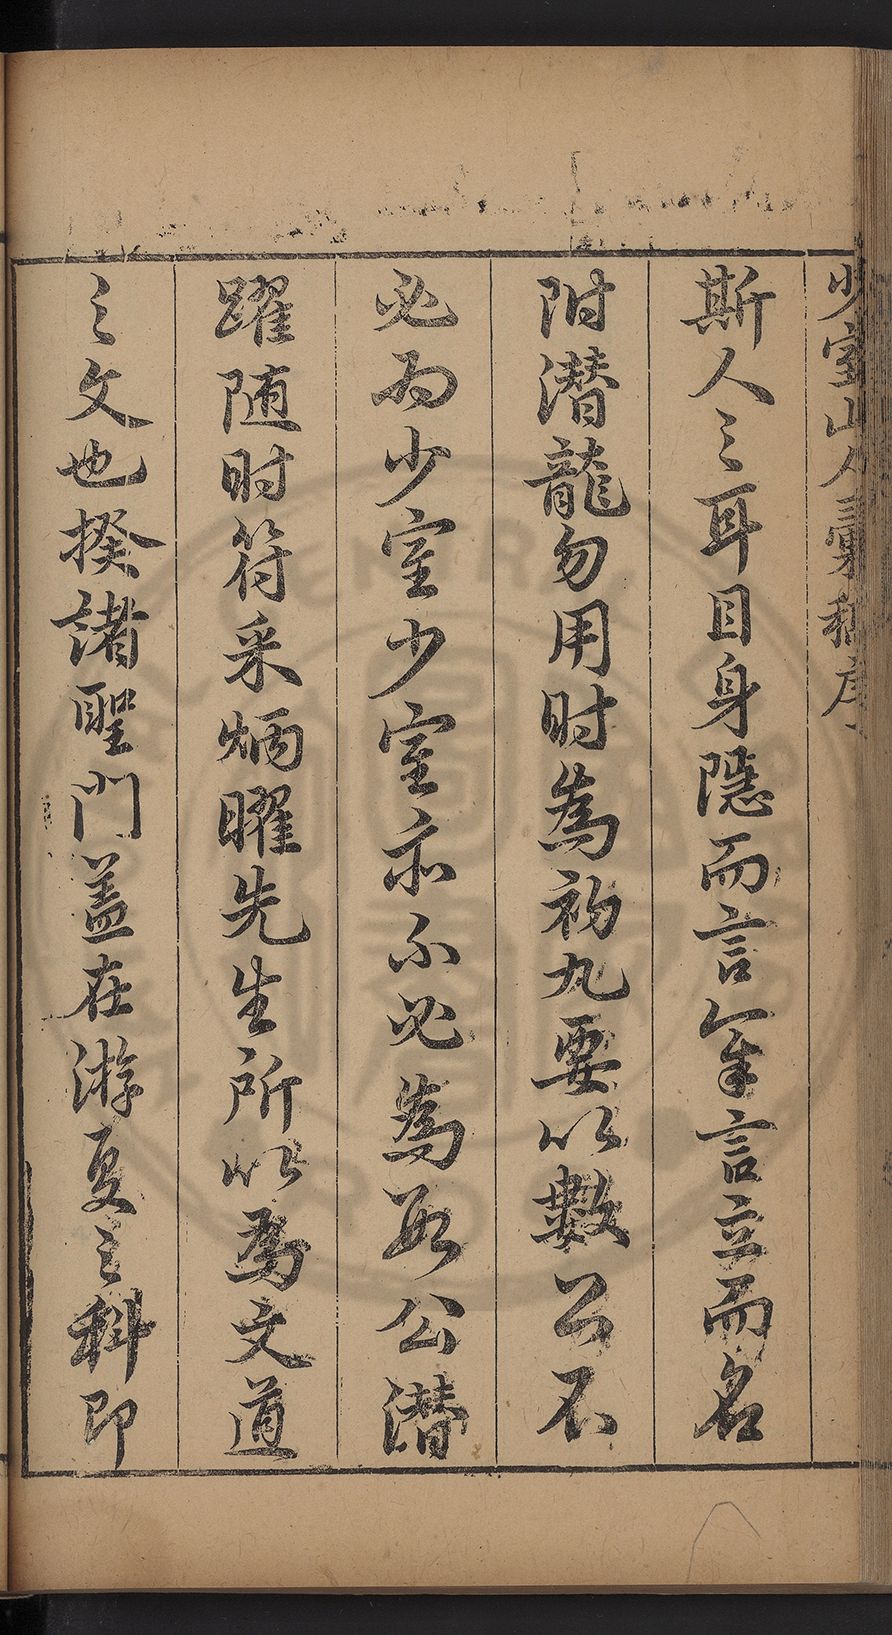 少室山人彙稿序
斯人之耳目身隱而言言立而名
附潛龍勿用时為初九要以數公不
必为少室少室亦不必為数公潛
躍随时符采炳曜先生所以爲文道
之文也揆諸聖門蓋在游夏之科即